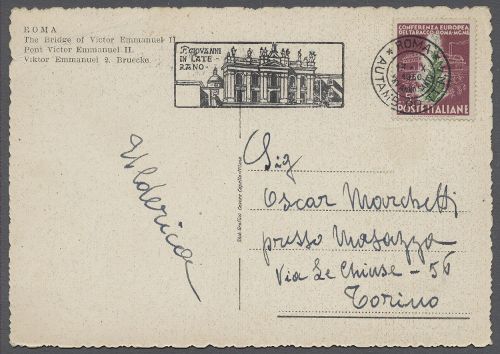 ROMA
The Bridge of Victor Emmanuel II.
Pont Victor Emmanuel II.
Viktor Emmanuel 2. Bruecke.
S. GIOVANNI
IN LATE
RANO
ROMA
CONFERENZA EUROPEA
DEL TABACCO ROMA-MCML
POSTE ITALIANE
Ulderica
Sig
Oscar Marchetti
presso Masazza
Via Le Chiuse - 56
Torino